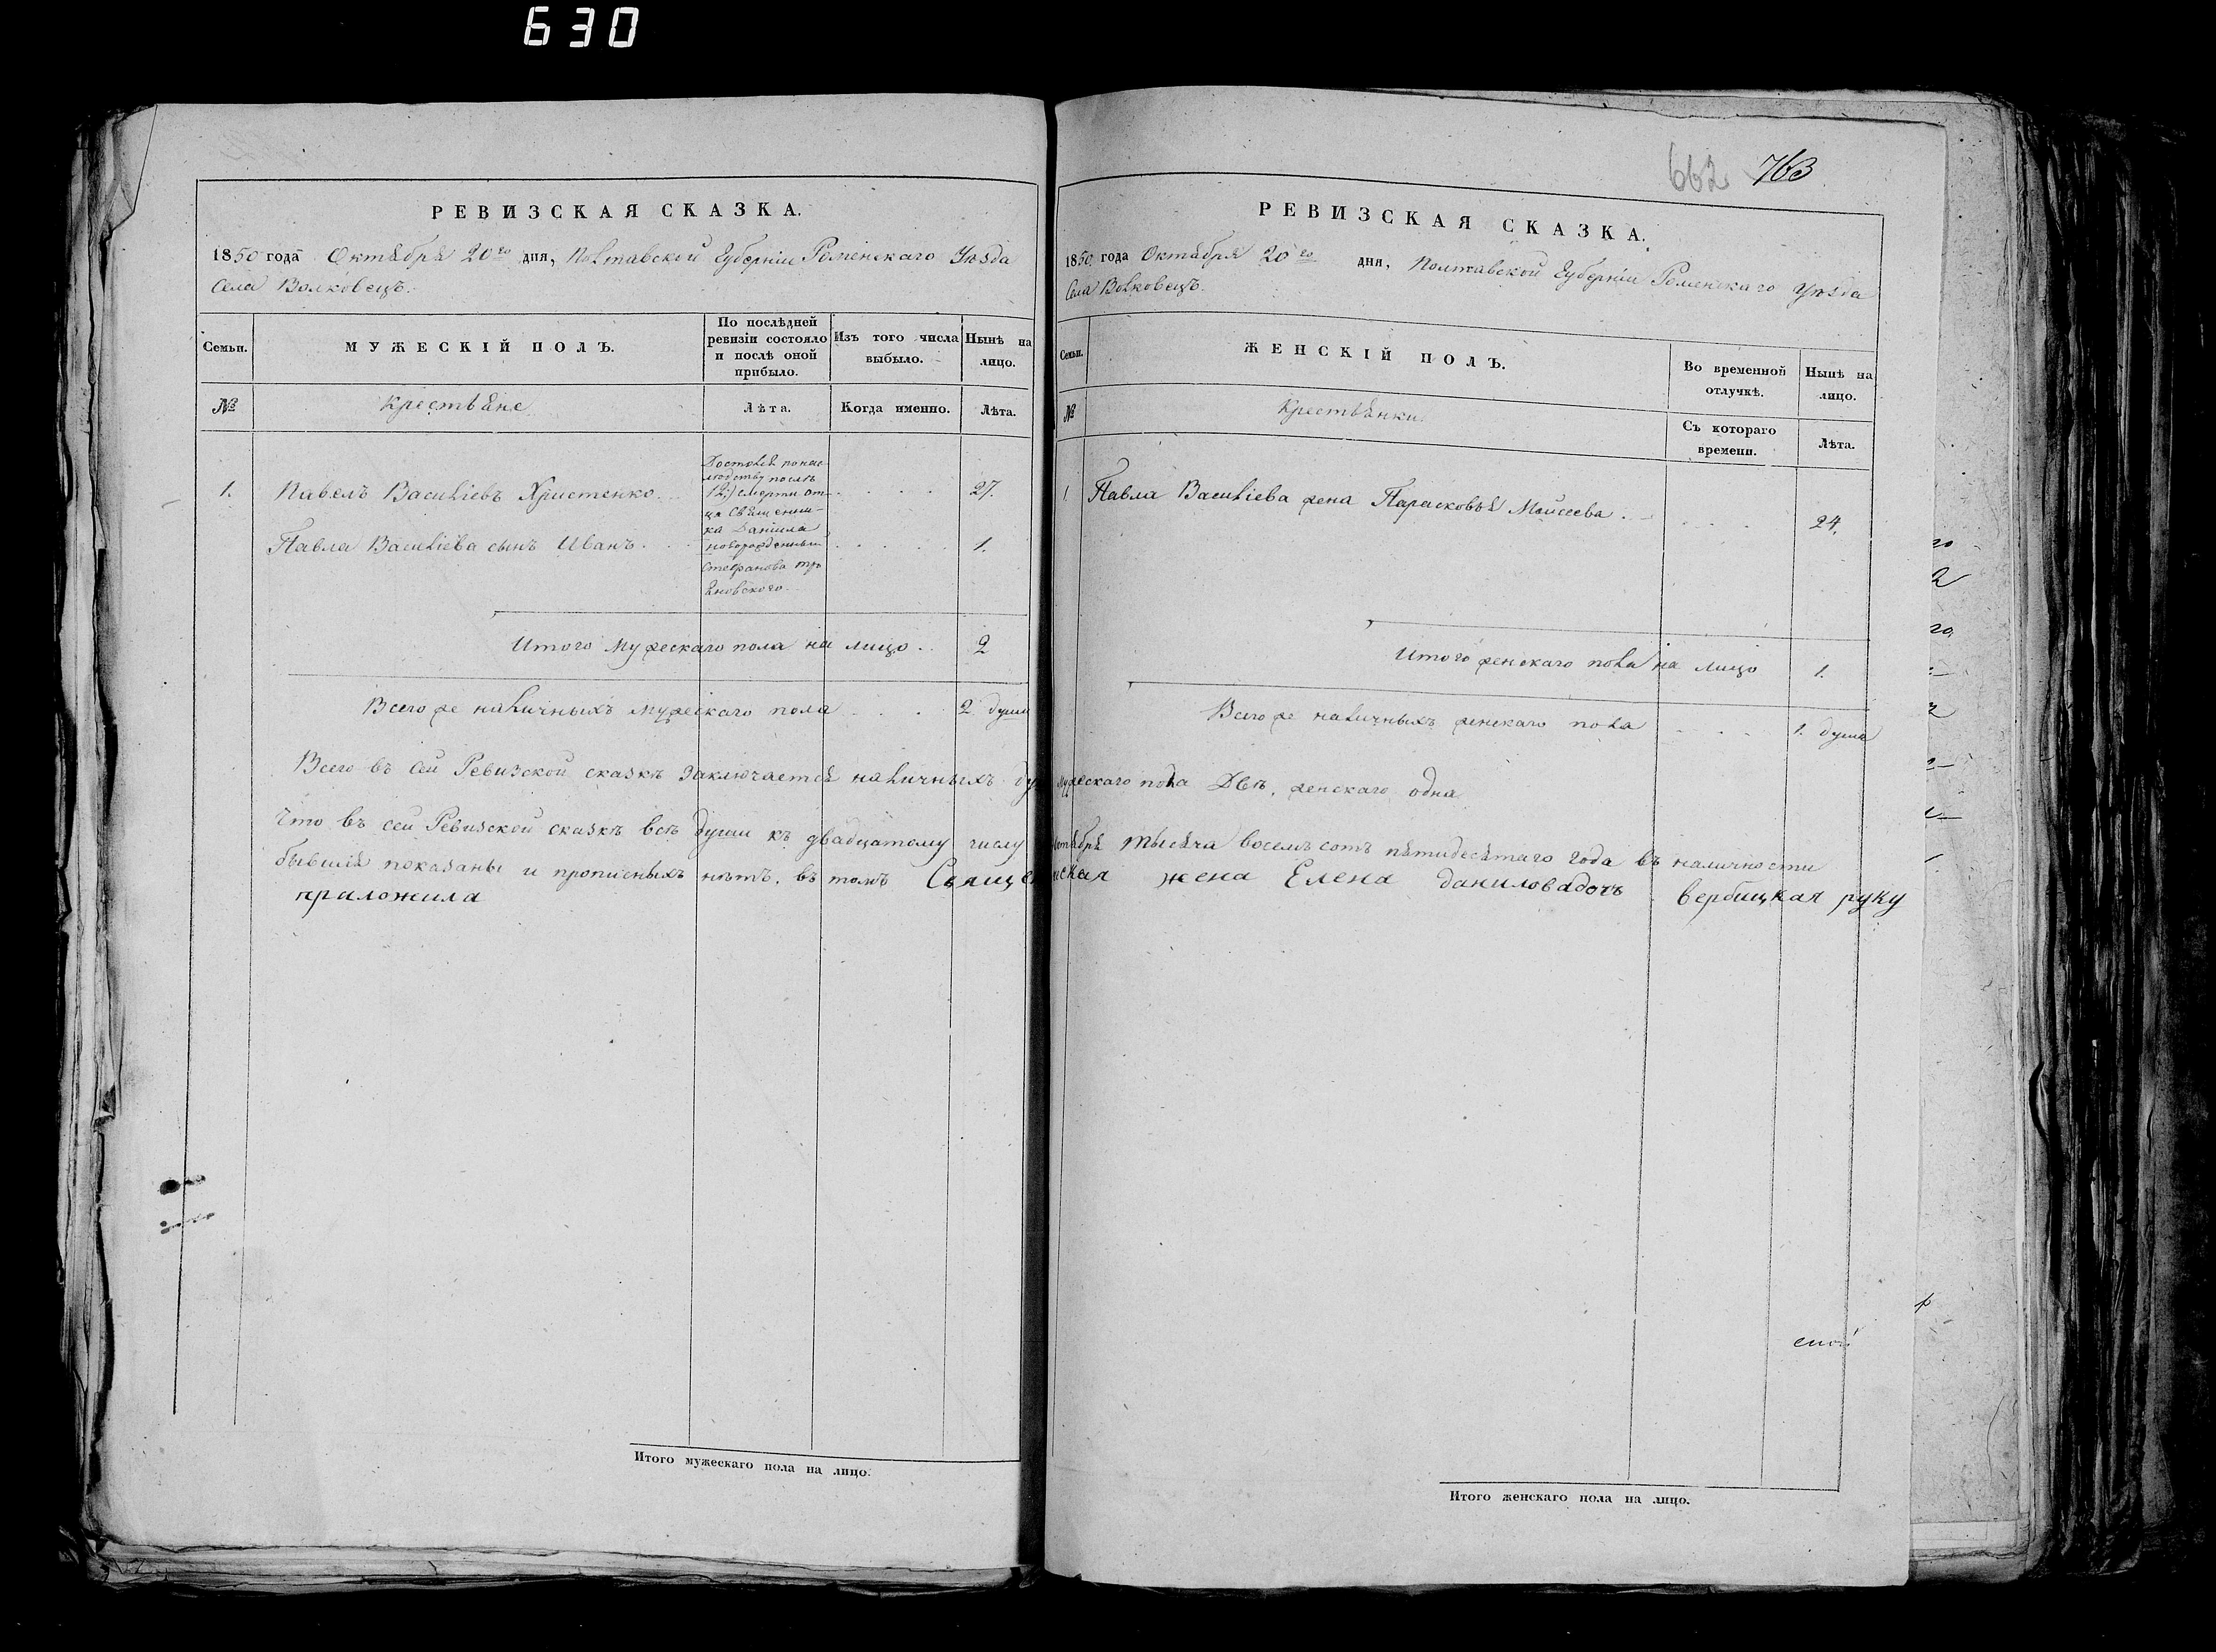 630
РЕВИЗСКАЯ СКАЗКА.
1850 года Октября 20го дня, Полтавской Губерніи Роменскаго Уѣзда
Села Волковецъ.
Семьи.
МУЖЕСКІЙ ПОЛЪ.
По послѣдней ревизіи состояло и послѣ оной прибыло.
Изъ того числа выбыло.
Нынѣ на лицо.
№
Крестьяне
Лѣта.
Когда именно.
Лѣта.
1. Павелъ Василіевъ Христенко 27.
Достался по нас-
лѣдству послѣ
12) смерти от-
ца Священни-
ка Даніила
Павла Василіева сынъ Иванъ новорожденный 1.
Стефанова
Итого Мужескаго пола на лицо 2
Всего же наличныхъ мужескаго пола 2 души
662 763
РЕВИЗСКАЯ СКАЗКА.
1850 года Октября 20го дня, Полтавской Губерніи Роменскаго Уѣзда
Села Волковецъ.
Семьи.
ЖЕНСКІЙ ПОЛЪ.
Во временной отлучкѣ.
Нынѣ на лицо.
№
Крестьянки
Съ котораго времени.
Лѣта.
1 Павла Василіева жена Парасковья Моисеева 24.
Итого женскаго пола на лицо 1.
Всего же наличныхъ женскаго пола 1. душа
Всего въ сей Ревизской сказкѣ заключается наличныхъ ду мужескаго пола двѣ, женскаго одна
Что въ сей Ревизской сказкѣ всѣ души къ двадцатому числу Октября тысяча восемъ сотъ пятидесятаго года въ наличности
бывшія показаны и прописныхъ нѣтъ, въ томъ Священическая жена Елена данилова дочь вербицкая руку
приложила
Итого мужескаго пола на лицо.
Итого женскаго пола на лицо.